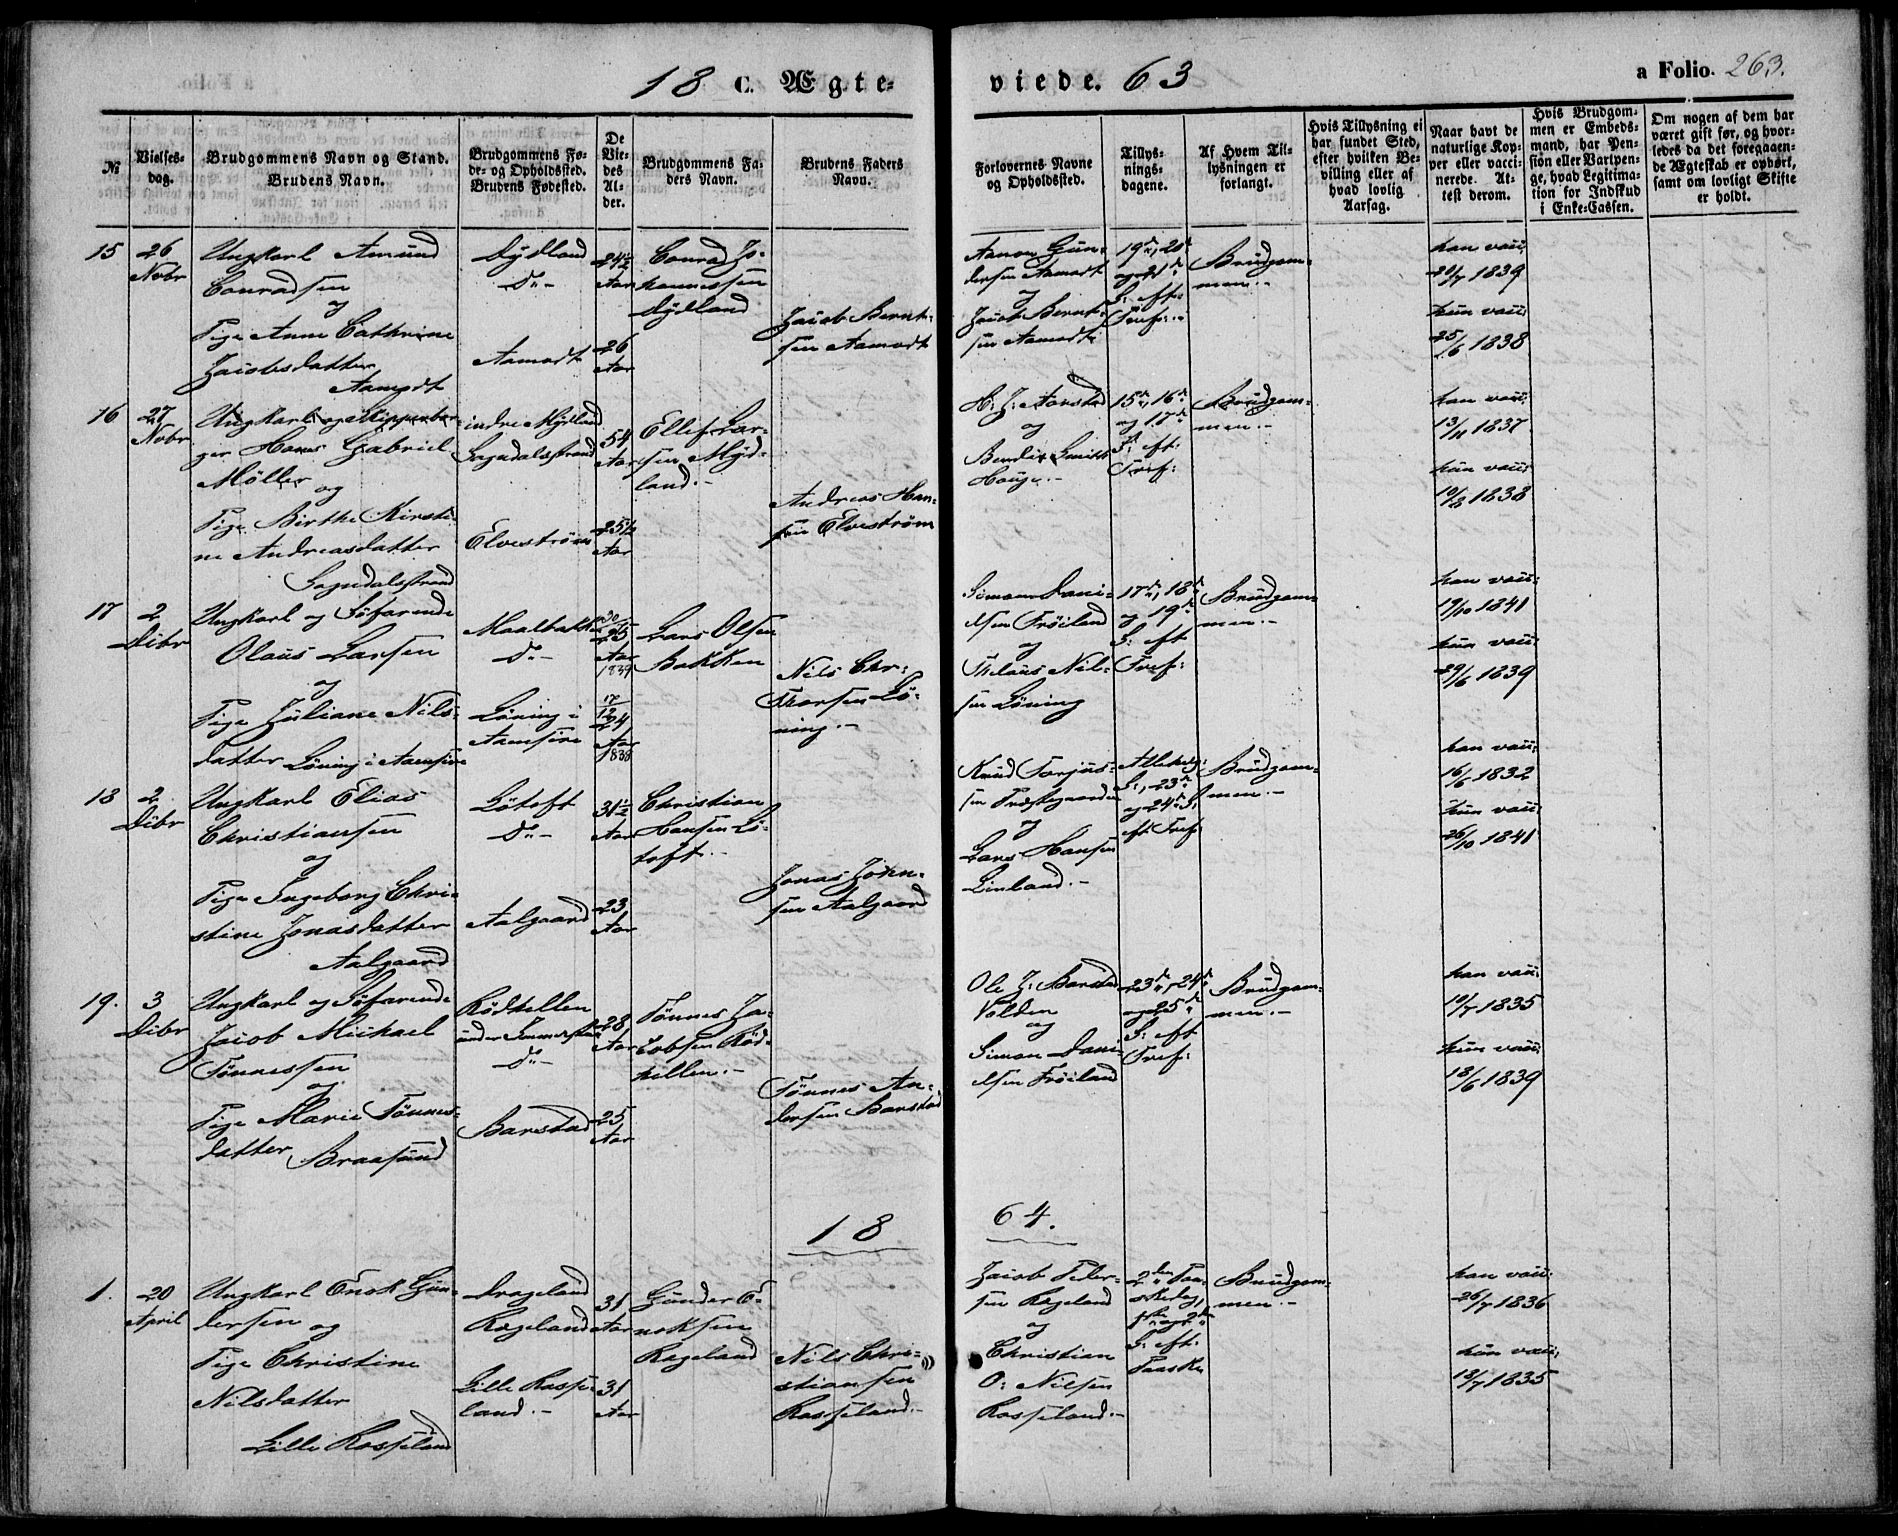 18 C. Ægte-
viede. 63
a Folio. 263.
№
Vielses-
dag.
Brudgommens Navn og Stand.
Brudens Navn.
Brudgommens Fø-
de- og Opholdssted.
Brudens Fødested.
De
Vie-
des
Al-
der.
Brudgommens Fa-
ders Navn.
Brudens Faders
Navn.
Forlovernes Navne
og Opholdssted.
Tillys-
nings-
dagene.
Af Hvem Til-
lysningen er
forlangt.
Hvis Tillysning ei
har fundet Sted,
efter hvilken Be-
villing eller af
hvad lovlig
Aarsag.
Naar havt de
naturlige Kop-
per eller vacci-
nerede. At-
test derom.
Hvis Brudgom-
men er Embeds-
mand, har Pen-
sion eller Vartpen-
ge, hvad Legitima-
tion for Indskud
i Enke-Cassen.
Om nogen af dem har
været gift før, og hvor-
ledes da det foregaaen-
de Ægteskab er ophørt,
samt om lovligt Skifte
er holdt.
15
26
Nobr
Ungkarl Amund
Conradsen
og
Pige Anne Cathrine
Jacobsdatter
Aamodt
Dydland
Do -
Aamodt
24½
Aar
26
Aar
Conrad Jo-
hannessen
Dydland
Jacob Bernt-
sen Aamodt
Aanon Gun-
dersen Aamodt
og
Jacob Bernt-
sen Aamodt
19de, 20de
og 21de
S: eft:
Tref:
Brudgom-
men.-
han vacc:
20/7 1839
hun vacc:
25/6 1838
16
27
Nobr
Ungkarl og Skippenbor-
ger Hans Gabriel
Möller og
Pige Birthe Kirsti-
ne Andreasdatter
Sogndalsstrand
indre Mydland
Sogndalsstrand
Elveström
54
Aar
25½
Aar
Ellef Lar-
sen Myd-
land.-
Andreas Han-
sen Elveström
H: J: Aarstad
og
Bendix Smith
Hauge.-
15de, 16de
og 17de
S: eft:
Tref:
Brudgom-
men.-
han vacc:
13/11 1837
hun vacc:
10/8 1838
17
2
Dcbr
Ungkarl og Söfarende
Olaus Larsen
og
Pige Juliane Nils-
datter Löning i Aamsire
Maalbakken
Do -
Löning i
Aamsire
25
Aar
24
Aar
1838
Lars Olsen
Bakken
Nils Chr:
Thorsen Lö-
ning.-
Simon Dani-
elsen Fröiland
og
Thelaus Nil-
sen Löning
17de, 18de
og 19de
S: eft
Tref:
Brudgom-
men.-
han vacc:
19/10 1841
hun vacc:
29/6 1839
18
2
Dcbr
Ungkarl Elias
Christiansen
og
Pige Ingeborg Chri-
stine Jonasdatter
Aalgaard
Lötoft
Do -
Aalgaard
31½
Aar
23
Aar
Christian
Hansen Lö-
toft.-
Jonas John-
sen Aalgaard
Knud Torjus-
sen Præstegaarden
og
Lars Hansen
Linland.-
Allehelg:
S:, 23de
og 24de S:
eft Tref:
Brudgom-
men.-
han vacc:
16/6 1832
hun vacc:
26/10 1841
19.
3
Dcbr
Ungkarl og Söfarende
Jacob Michael
Tönnessen
og
Pige Marie Tönnes-
datter Braasund
Rödhellen
Do -
Barstad
28
Aar
25
Aar
Tönnes Ja-
cobsen Röd-
hellen.-
Tönnes An-
dersen Barstad
Ole J: Barstad
Volden
og
Simon Dani-
elsen Fröiland
23de, 24de
og 25de
S: eft
Tref:
Brudgom-
men.-
han vacc:
10/7 1835
hun vacc:
18/6 1839
18
64.
1.
20
April
Ungkarl Enok Gun-
dersen og
Pige Christine
Nilsdatter
Lille Rosseland
Drageland
Rægeland
Lille Rosse-
land.-
31
Aar
31
Aar
Gunder E-
noksen
Rægeland
Nils Chri-
stiansen
Rosseland.-
Jacob Peder-
sen Rægeland
og
Christian
O: Nilsen
Rosseland.-
2den Paa-
skedag,
1ste og 2de
S: eft:
Paaske
Brudgom-
men.-
han vacc:
26/7 1836
hun vacc:
18/7 1835